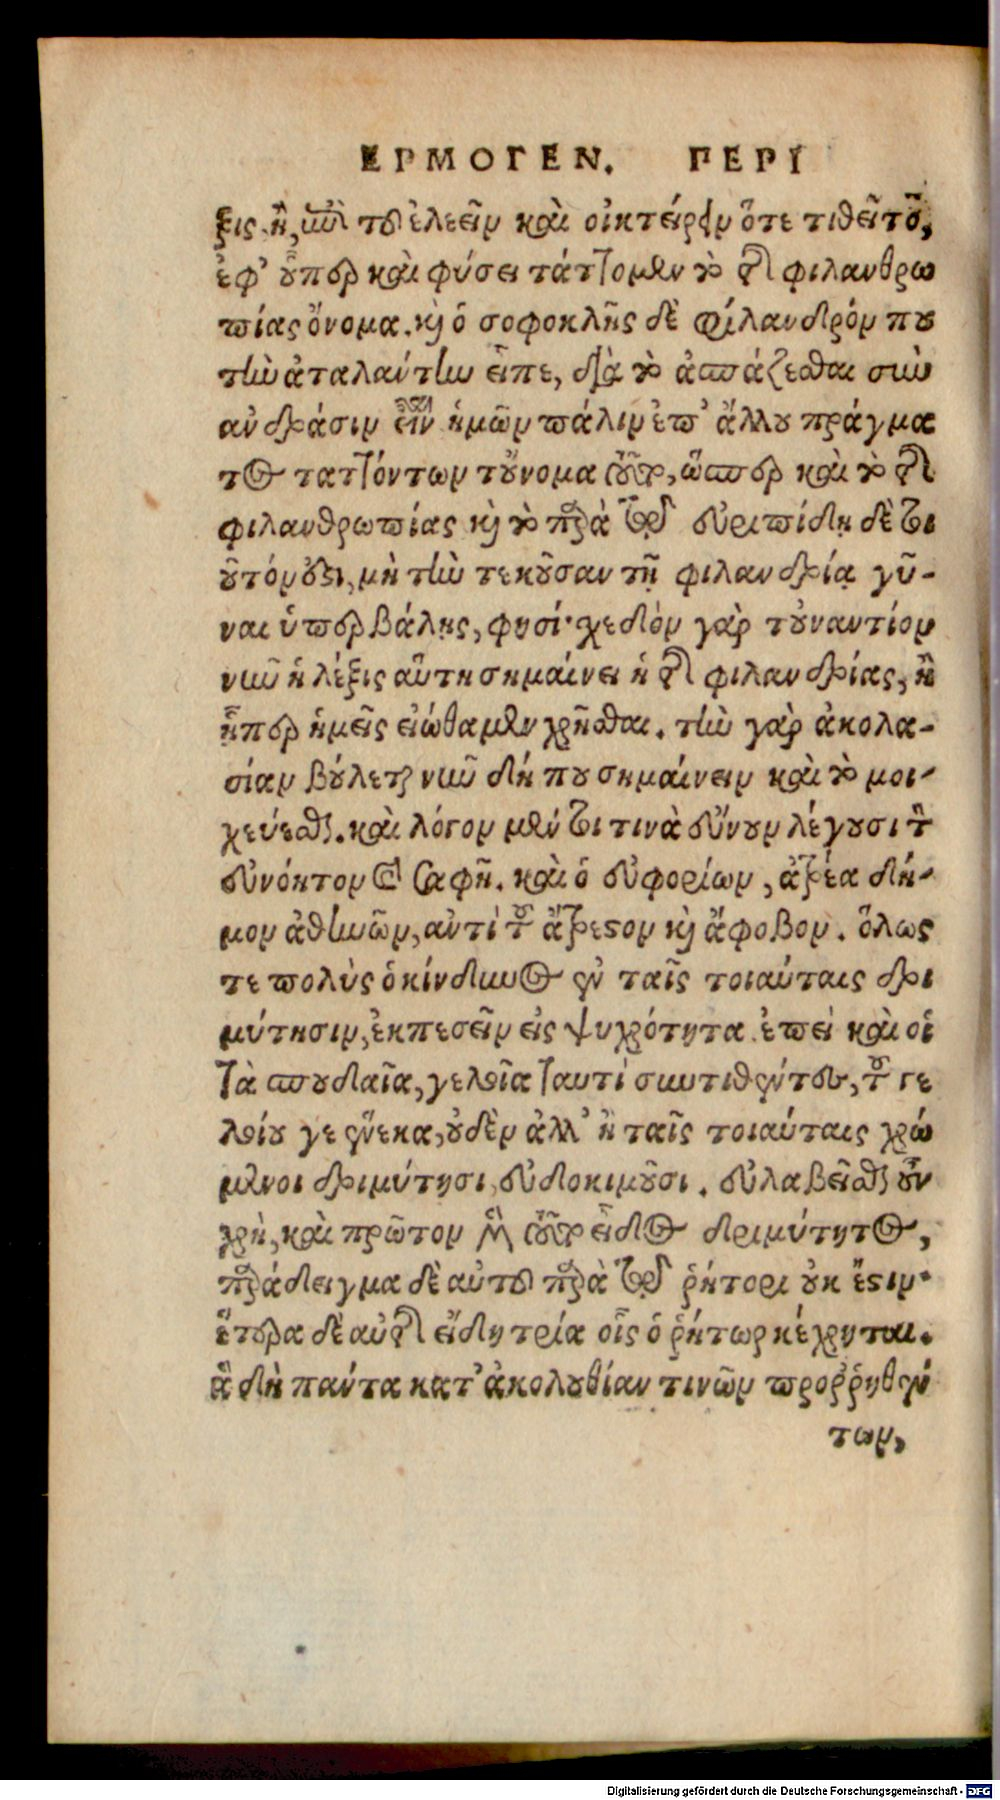 ΕΡΜΟΓΕΝ. ΠΕΡΙ
ξις ἢ, ἐπὶ τοῦ ἐλεεῖν καὶ οἰκτείρειν ὅτε τιθεῖτο,
ἐφ' οὗπερ καὶ φύσει τάττομεν τὸ τῆς φιλανθρω
πίας ὄνομα. καὶ ὁ σοφοκλῆς δὲ φίλανδρόν που
τὴν ἀταλάντην εἶπε, διὰ τὸ ἀσπάζεσθαι σὺν
ἀνδράσιν εἶναι ἡμῶν πάλιν ἐπ' ἄλλου πράγμα
τος ταττόντων τοὔνομα τοῦτο, ὥσπερ καὶ τὸ τῆς
φιλανθρωπίας καὶ τὸ παρὰ τῷ εὐριπίδῃ δὲ τοι
οῦτόν ἐστι, μὴ τὴν τεκοῦσαν τῇ φιλανδρίᾳ γύ-
ναι ὑπερβάλῃς, φησί· σχεδὸν γὰρ τοὐναντίον
νῦν ἡ λέξις αὕτη σημαίνει ἡ τῆς φιλανδρίας, ἢ
ᾗπερ ἡμεῖς εἰώθαμεν χρῆσθαι. τὴν γὰρ ἀκολα-
σίαν βούλεται νῦν δή που σημαίνειν καὶ τὸ μοι-
χεύεσθαι. καὶ λόγον μέν τοι τινὰ εὔνουν λέγουσι τὸν
εὐνόητον καὶ σαφῆ. καὶ ὁ εὐφορίων, ἀτρέα δή-
μον ἀθηνῶν, ἀντὶ τοῦ ἄτρεστον καὶ ἄφοβον. ὅλως
τε πολὺς ὁ κίνδυνος ἐν ταῖς τοιαύταις δρι
μύτησιν, ἐκπεσεῖν εἰς ψυχρότητα. ἐπεὶ καὶ οἱ
τὰ σπουδαῖα, γελοῖα ταυτὶ συντιθέντες, τοῦ γε
λοίου γε ἕνεκα, οὐδὲν ἀλλ' ἢ ταῖς τοιαύταις χρώ
μενοι δριμύτησι, εὐδοκιμοῦσι. εὐλαβεῖσθαι οὖν
χρὴ, καὶ πρῶτον μὲν τοῦτο εἶδος δριμύτητος,
παράδειγμα δὲ αὐτοῦ παρὰ τῷ ῥήτορι οὐκ ἔστιν·
ἕτερα δὲ αὐτῆς εἴδη τρία οἷς ὁ ῥήτωρ κέχρηται.
ἃ δὴ πάντα κατ' ἀκολουθίαν τινῶν προῤῥηθέν
των,
Digitalisierung gefördert durch die Deutsche Forschungsgemeinschaft - DFG